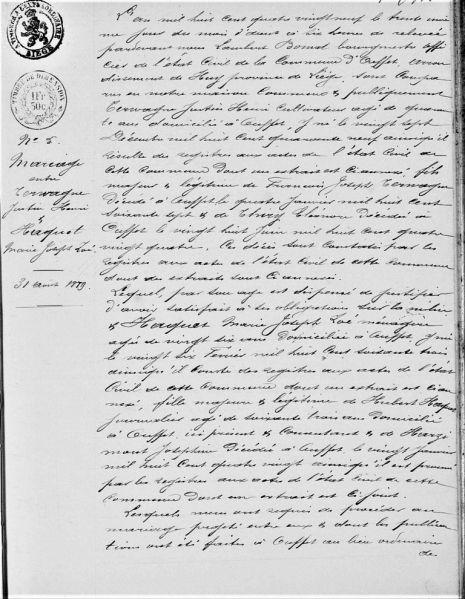 TIMBRE DE DIMENSION
1 Fr
50c
L'an mil huit cent quatre vingt neuf le trente
me jour du mois d'août à six heures de relevée
pardevant nous Lambert bourgmestre offi
cier de l'état Civil de la Commune d'Ouffet, arron
dissement de Huy province de Liège, sont Compa
rus en notre maison Commune & publiquement
Terwagne Justin Henri Cultivateur agé de quaran
te ans domicilié à Ouffet, y né le vingt sept
Décembre mil huit cent quarante neuf ainsi qu'il
résulte des registres aux actes de l'état Civil de
cette Commune dont un extrait est ci annexé, fils
majeur & légitime de François Joseph Terwagne
Décédé à Ouffet le quatre Janvier mil huit cent
soixante sept & de Eléonore Décédée à
Ouffet le vingt huit Juin mil huit cent quatre
vingt quatre. Ces décès sont constatés par les
registres aux actes de l'état Civil de cette commune
dont des extraits sont ci annexés.
Lequel, par son age est dispensé de justifier
d'avoir satisfait à ses obligations sur la milice
& Haquet Marie Joseph Zoé ménagère
agée de vingt six ans domiciliée à Ouffet, y née
le vingt six Février mil huit Cent soixante trois
ainsi qu'il conste des registres aux actes de l'état
Civil de cette Commune dont un extrait est ci an
nexé, fille majeure & légitime de Hubert Haquet
Journalier agé de soixante trois ans domicilié
à Ouffet, ici présent & Consentant & de
mont Joséphine Décédée à Ouffet le vingt Janvier
mil huit Cent quatre vingt ainsi qu'il est prouvé
par les registres aux actes de l'état Civil de cette
Commune dont un extrait est ci joint.
Lesquels nous ont requis de procéder au
mariage projeté entre eux & dont les publica
tions ont été faites à Ouffet au lieu ordinaire
de
N° 5.
Mariage
entre
Terwagne
Justin Henri
&
Haquet
Marie Joseph Zoé